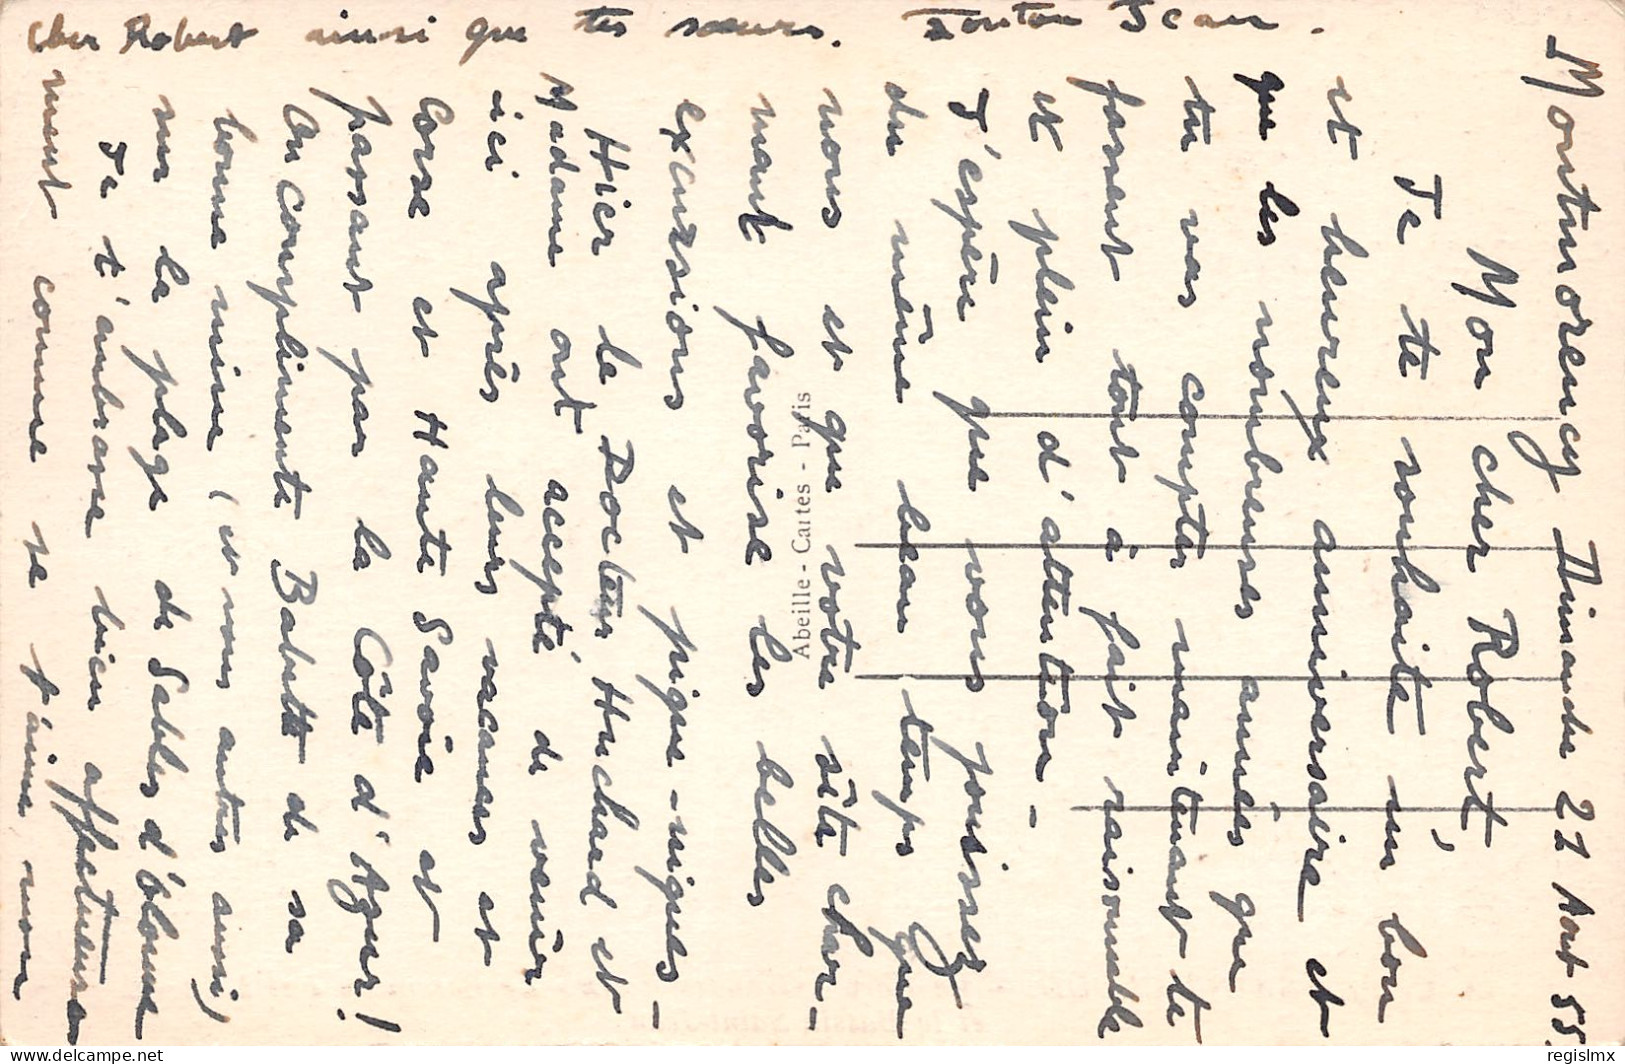 Montmorency Dimanche 21 Aout 55.
Mon cher Robert,
Je te souhaite un bon
et heureux anniversaire et
que les nombreuses années que
tu vas compter maintenant te
fassent tout à fait raisonnable
et plein d'attention -
J'espère que vous jouissez
du même beau temps que
nous et que votre site char-
mant favorise les belles
excursions et pique-niques -
Hier le Docteur Huchard et
Madame ont accepté de venir
ici après leurs vacances et
Corse et Haute Savoie et
passant par la Côte d'Azur!
On complimente Babette de sa
bonne mine (et nous autres aussi)
sur la plage de Sables d'Olonne
Je t'embrasse bien affectueuse
ment comme je t'aime, mon
cher Robert ainsi que tes sœurs. Tonton Jean.
Abeille - Cartes - Paris
regislmx